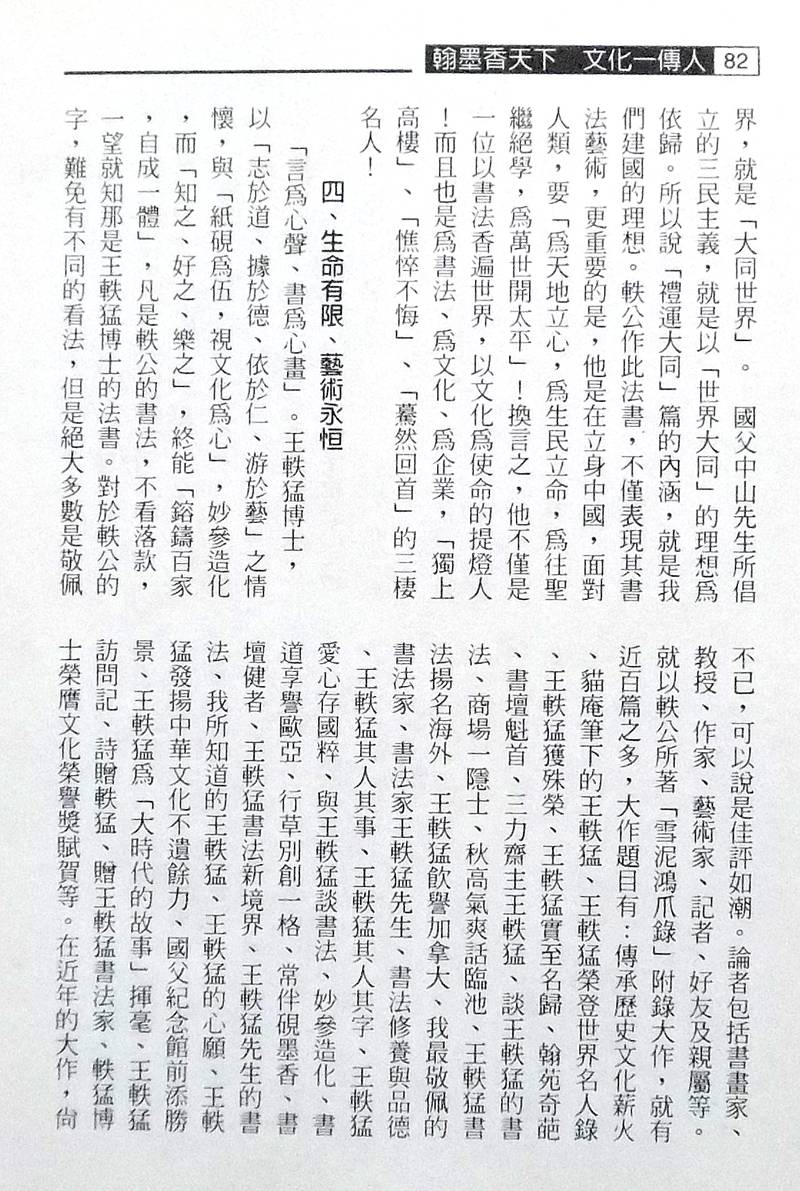 翰墨香天下　文化一傳人 82
界，就是「大同世界」。　國父中山先生所倡
立的三民主義，就是以「世界大同」的理想爲
依歸。所以說「禮運大同」篇的內涵，就是我
們建國的理想。軼公作此法書，不僅表現其書
法藝術，更重要的是，他是在立身中國，面對
人類，要「爲天地立心，爲生民立命，爲往聖
繼絕學，爲萬世開太平」！換言之，他不僅是
一位以書法香遍世界，以文化爲使命的提燈人
！而且也是爲書法、爲文化、爲企業，「獨上
高樓」、「憔悴不悔」、「驀然回首」的三棲
名人！
四、生命有限、藝術永恒
「言爲心聲、書爲心畫」。王軼猛博士，
以「志於道、據於德、依於仁、游於藝」之情
懷，與「紙硯爲伍，視文化爲心」，妙參造化
，而「知之、好之、樂之」，終能「鎔鑄百家
，自成一體」，凡是軼公的書法，不看落款，
一望就知那是王軼猛博士的法書。對於軼公的
字，難免有不同的看法，但是絕大多數是敬佩
不已，可以說是佳評如潮。論者包括書畫家、
教授、作家、藝術家、記者、好友及親屬等。
就以軼公所著「雪泥鴻爪錄」附錄大作，就有
近百篇之多，大作題目有：傳承歷史文化薪火
、貓庵筆下的王軼猛、王軼猛榮登世界名人錄
、王軼猛獲殊榮、王軼猛實至名歸、翰苑奇葩
、書壇魁首、三力齋主王軼猛、談王軼猛的書
法、商場一隱士、秋高氣爽話臨池、王軼猛書
法揚名海外、王軼猛飲譽加拿大、我最敬佩的
書法家、書法家王軼猛先生、書法修養與品德
、王軼猛其人其事、王軼猛其人其字、王軼猛
愛心存國粹、與王軼猛談書法、妙參造化、書
道享譽歐亞、行草別創一格、常伴硯墨香、書
壇健者、王軼猛書法新境界、王軼猛先生的書
法、我所知道的王軼猛、王軼猛的心願、王軼
猛發揚中華文化不遺餘力、國父紀念館前添勝
景、王軼猛爲「大時代的故事」揮毫、王軼猛
訪問記、詩贈軼猛、贈王軼猛書法家、軼猛博
士榮膺文化榮譽獎賦賀等。在近年的大作，尙